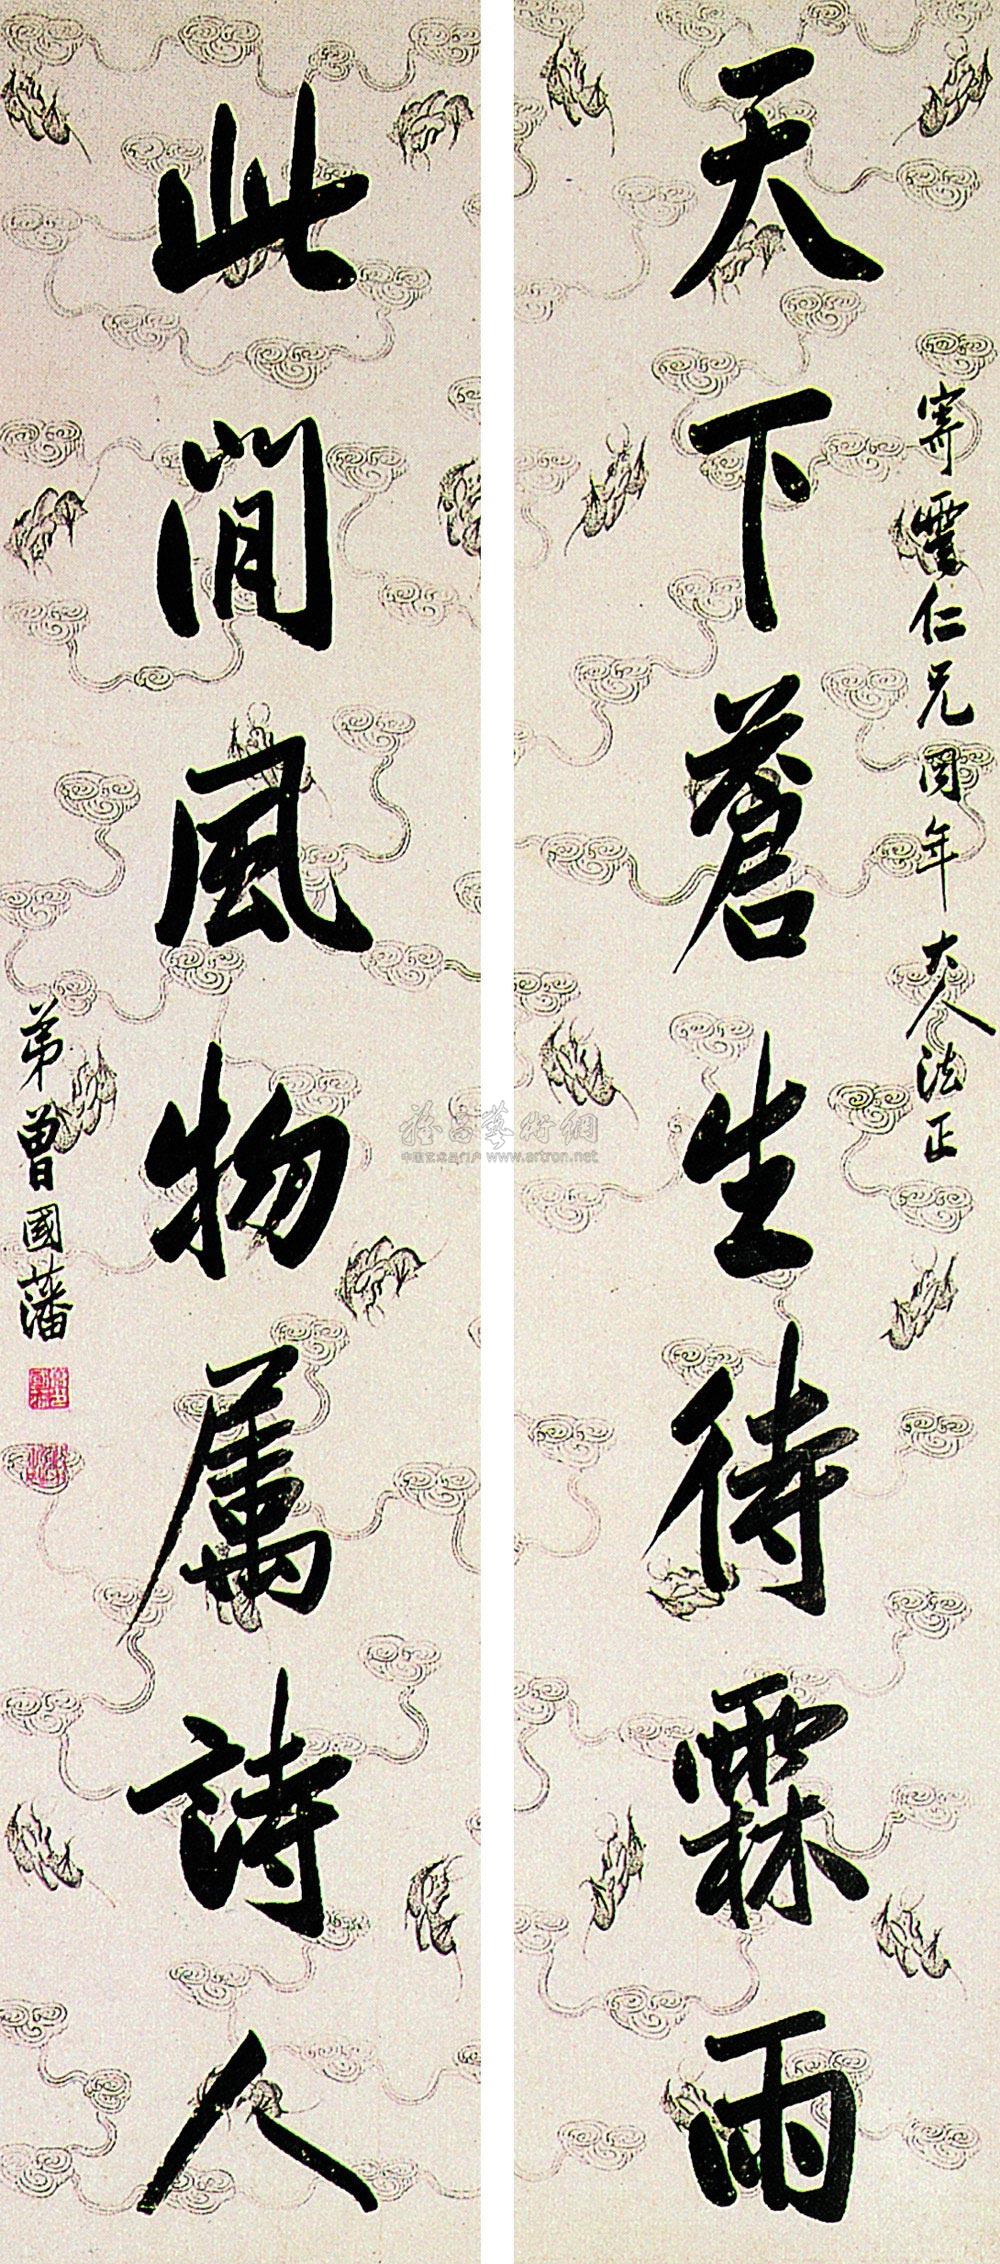 寄雲仁兄同年大人法正
天下蒼生待霖雨
此間風物屬詩人
弟曾國藩
雅昌藝術網
中国艺术品门户 www.artron.net